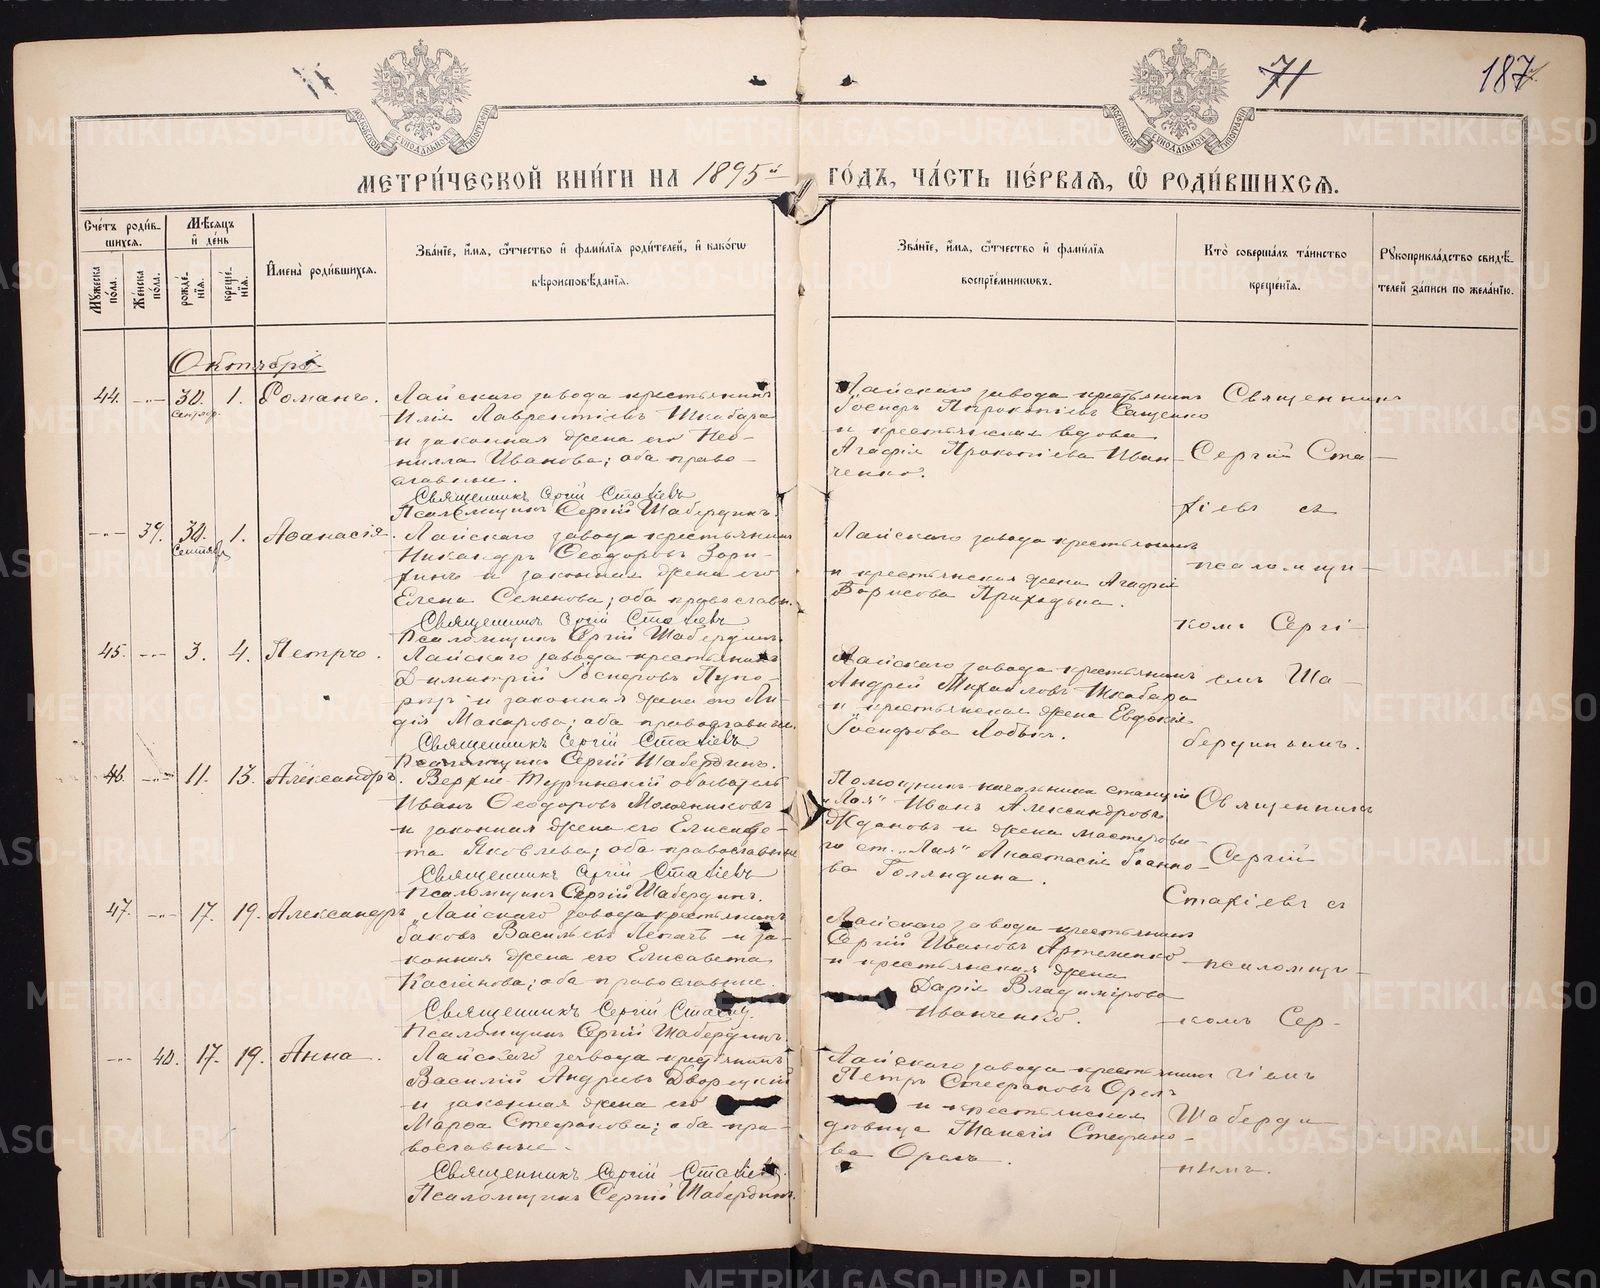 71
187
МЕТРИ́ЧЕСКОЙ КНИ́ГИ НА 1895й ГО́ДЪ, ЧА́СТЬ ПЕ́РВАЯ, Ѽ РОДИ́ВШИХСЯ.
Сче́тъ роди́вшихся.
Мѣ́сяцъ и́ де́нь
Мꙋ́жеска по́ла.
Же́нска по́ла.
рожде́нїя.
креще́нїя.
И́мена̀ роди́вшихся.
Зва́нїе, и́мя, ѻ҆́тчество и́ фами́лїя роди́телей, и́ како́гѡ вѣроисповѣ́данїя.
Зва́нїе, и́мя, ѻ҆́тчество и́ фами́лїя воспрїе́мникѡвъ.
Кто̀ соверша́лъ та́инство креще́нїя.
Рꙋкоприкла́дство свидѣ́телей за́писи по жела́нїю.
Октябрь
44. -"- 30. Сентябр. 1. Романъ.
Лайскаго завода крестьянинъ
Илія Лаврентіевъ Шкабара
и законная жена его Нео-
нилла Иванова; оба право-
славные.
Священникъ Сергій Стахіевъ
Псаломщикъ Сергій Шабердинъ.
Лайскаго завода крестьянинъ
Іосифъ Прокопіевъ Сащенко
и крестьянская вдова
Агафія Прокопіева Иван-
ченко.
Священникъ
Сергій Ста-
хіевъ съ
псаломщи-
комъ Сергі-
емъ Ша-
бердинымъ.
-"- 39. 30. Сентябр. 1. Аѳанасія.
Лайскаго завода крестьянинъ
Никандръ Ѳеодоровъ Зори-
хинъ и законная жена его
Елена Семенова; оба православн.
Священникъ Сергій Стахіевъ
Псаломщикъ Сергій Шабердинъ.
Лайскаго завода крестьянинъ
и крестьянская жена Агафія
Борисова Приходька.
45. -"- 3. 4. Петръ.
Лайскаго завода крестьянинъ
Димитрій Іосифовъ
и законная жена его Ли-
дія Макарова; оба православные.
Священникъ Сергій Стахіевъ
Псаломщикъ Сергій Шабердинъ.
Лайскаго завода крестьянинъ
Андрей Михайловъ Шкабара
и крестьянская жена Евдокія
Іосифова Лобъя.
46. -"- 11. 13. Александръ.
Верхне-Туринскій обыватель
Иванъ Ѳеодоровъ Молочниковъ
и законная жена его Елисаве-
та Яковлева; оба православные
Священникъ Сергій Стахіевъ
Псаломщикъ Сергій Шабердинъ.
Помощникъ начальника станціи
„Лая" Иванъ Александровъ
Ждановъ и жена мастерово-
го ст. „Лая" Анастасія Іоанно-
ва Голяндина.
Священникъ
Сергій
Стахіевъ съ
псаломщи-
комъ Сер-
гіемъ
Шаберди
нымъ.
47. -"- 17. 19. Александръ
Лайскаго завода крестьянинъ
Іаковъ Васильевъ Лекачъ и за-
конная жена его Елисавета
Касіанова; оба православные.
Священникъ Сергій Стахіевъ.
Псаломщикъ Сергій Шабердинъ
Лайскаго завода крестьянинъ
Сергій Ивановъ Артеменко
и крестьянская жена
Дарія Владимірова
Иванченко.
-"- 40. 17. 19. Анна.
Лайскаго завода крестьянинъ
Василій Андреевъ Дворецкій
и законная жена его
Марѳа Стефанова; оба пра-
вославные.
Священникъ Сергій Стахіевъ.
Псаломщикъ Сергій Шабердинъ.
Лайскаго завода крестьянинъ
Петръ Стефановъ Орелъ
и крестьянская
дѣвица Таисія Стефано-
ва Орелъ.